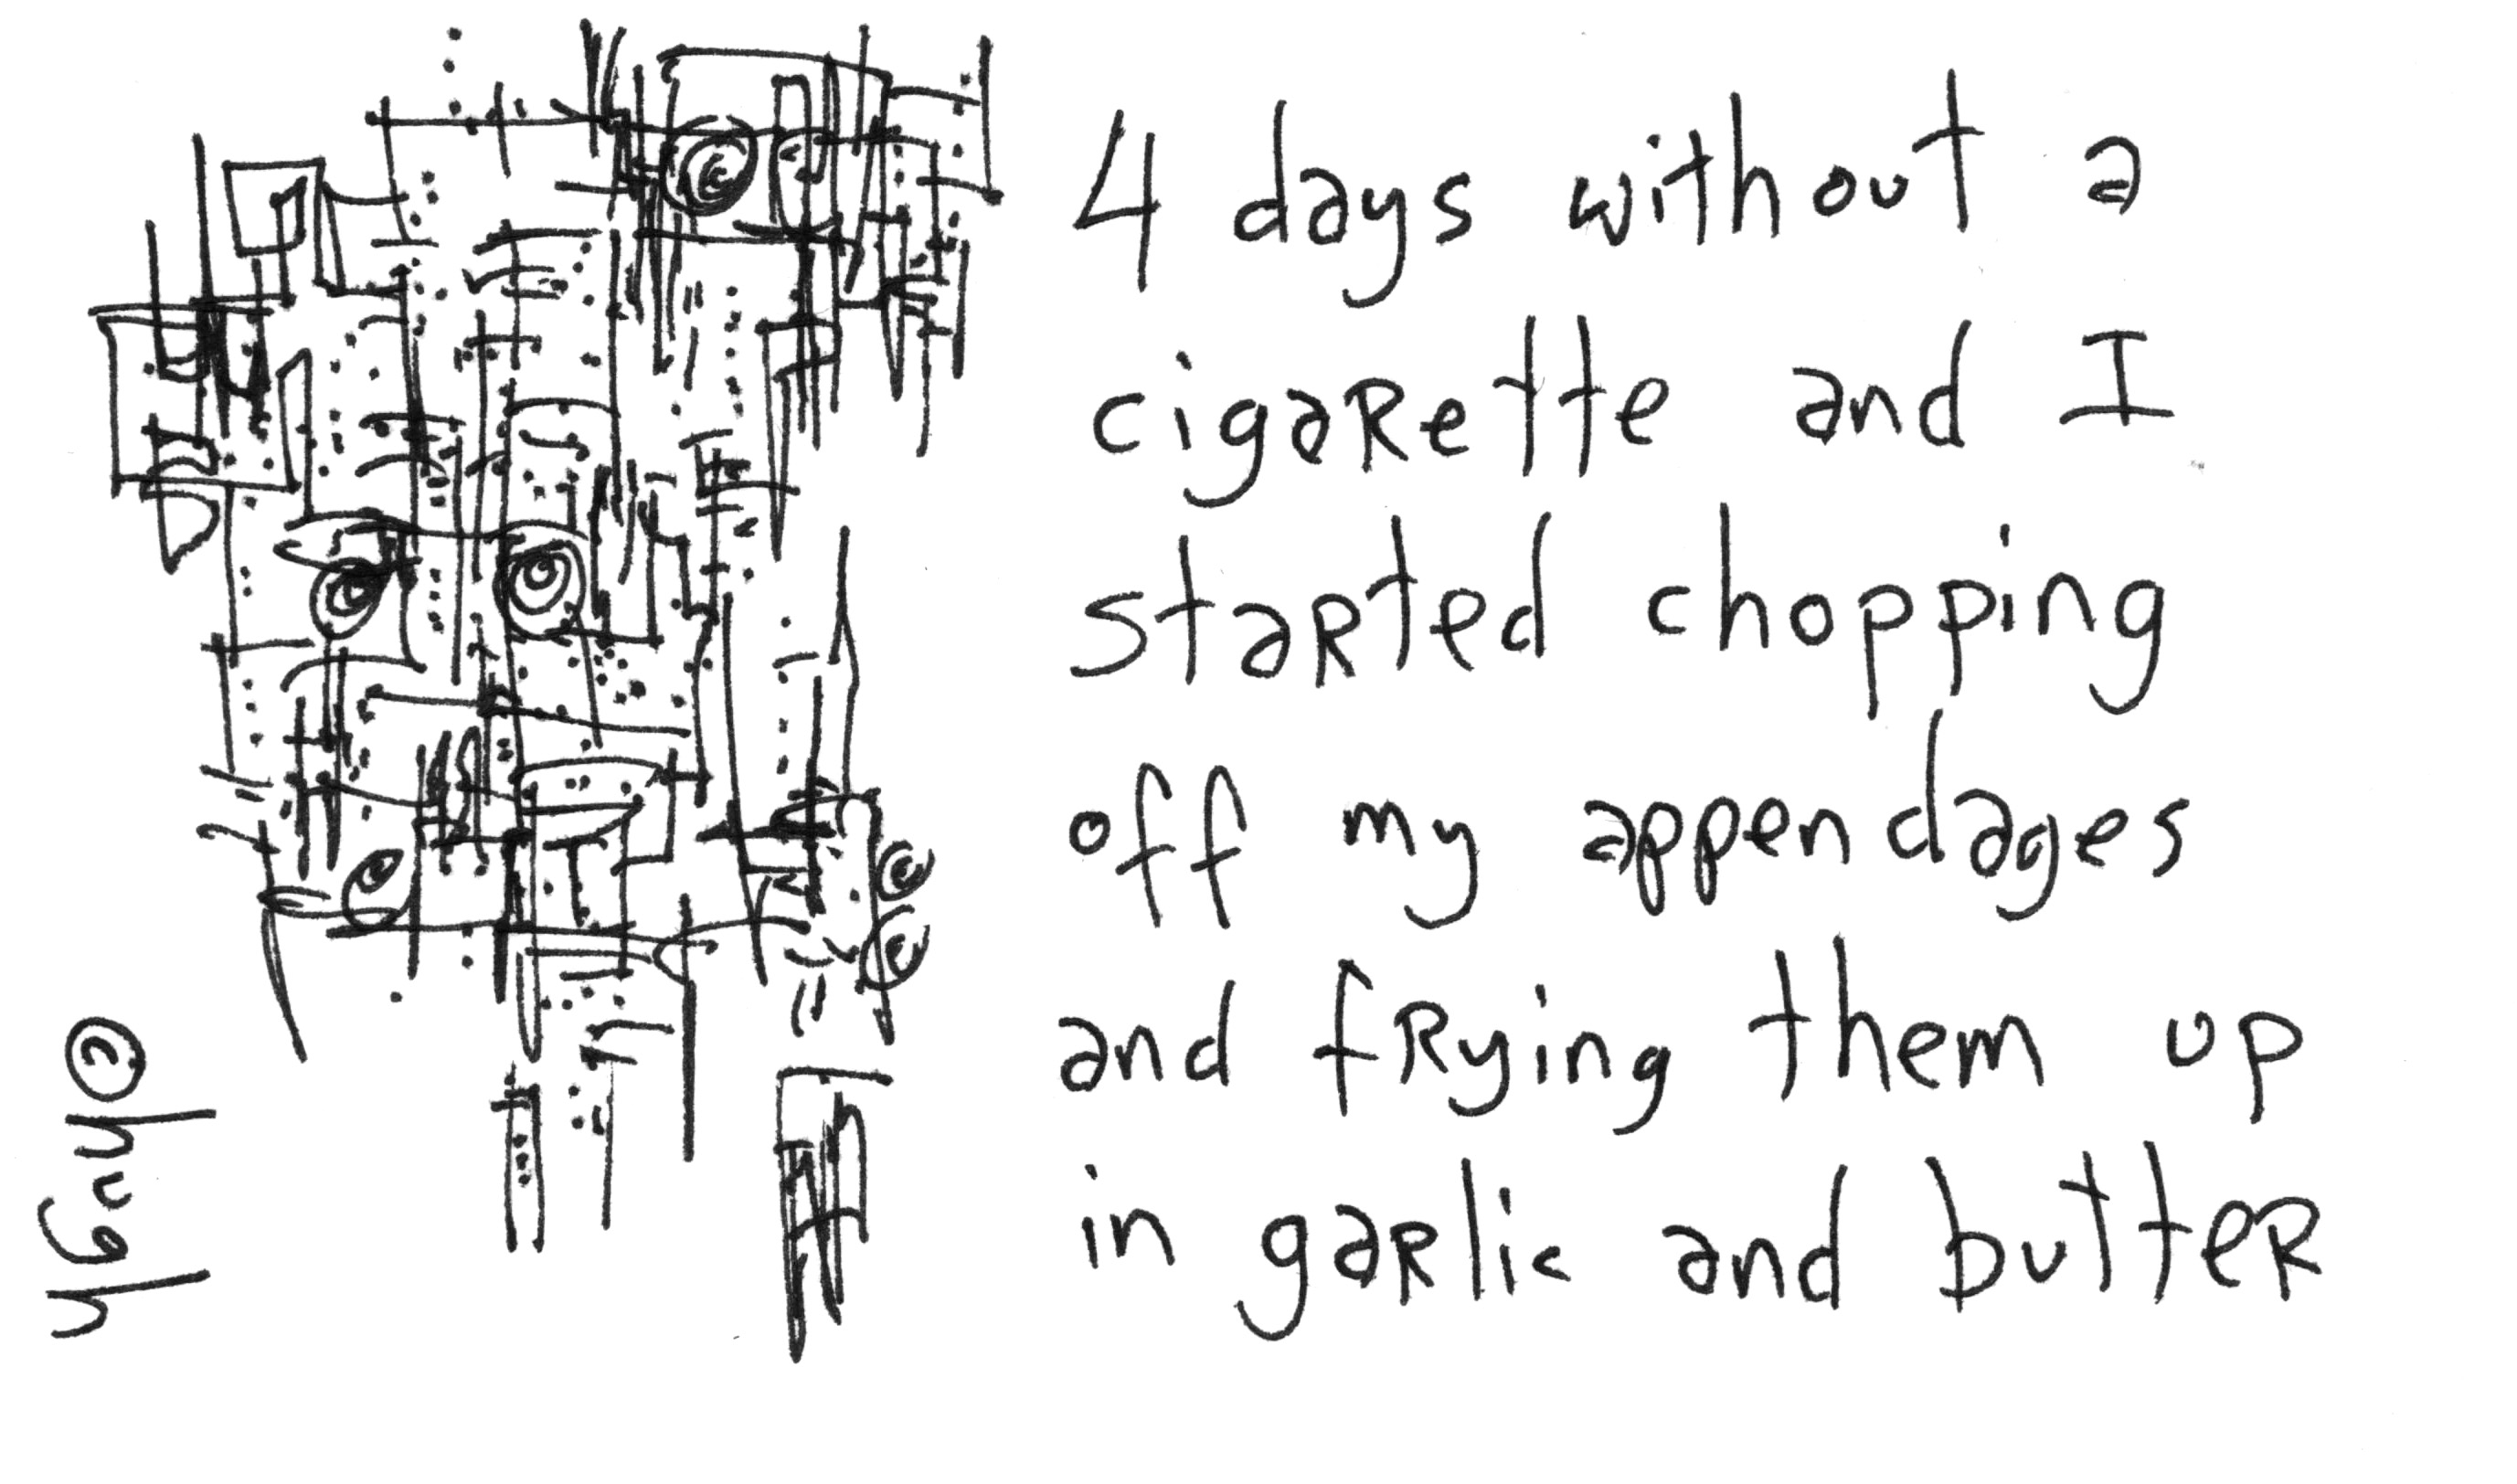 4 days without a
cigarette and I
started chopping
off my appendages
and frying them up
in garlic and butter
©hugh